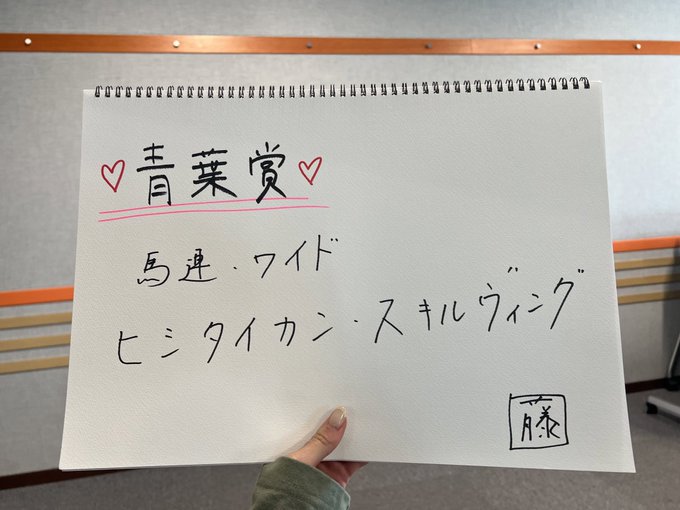 ♡青葉賞♡
馬連・ワイド
ヒシタイカン・スキルヴィング
藤